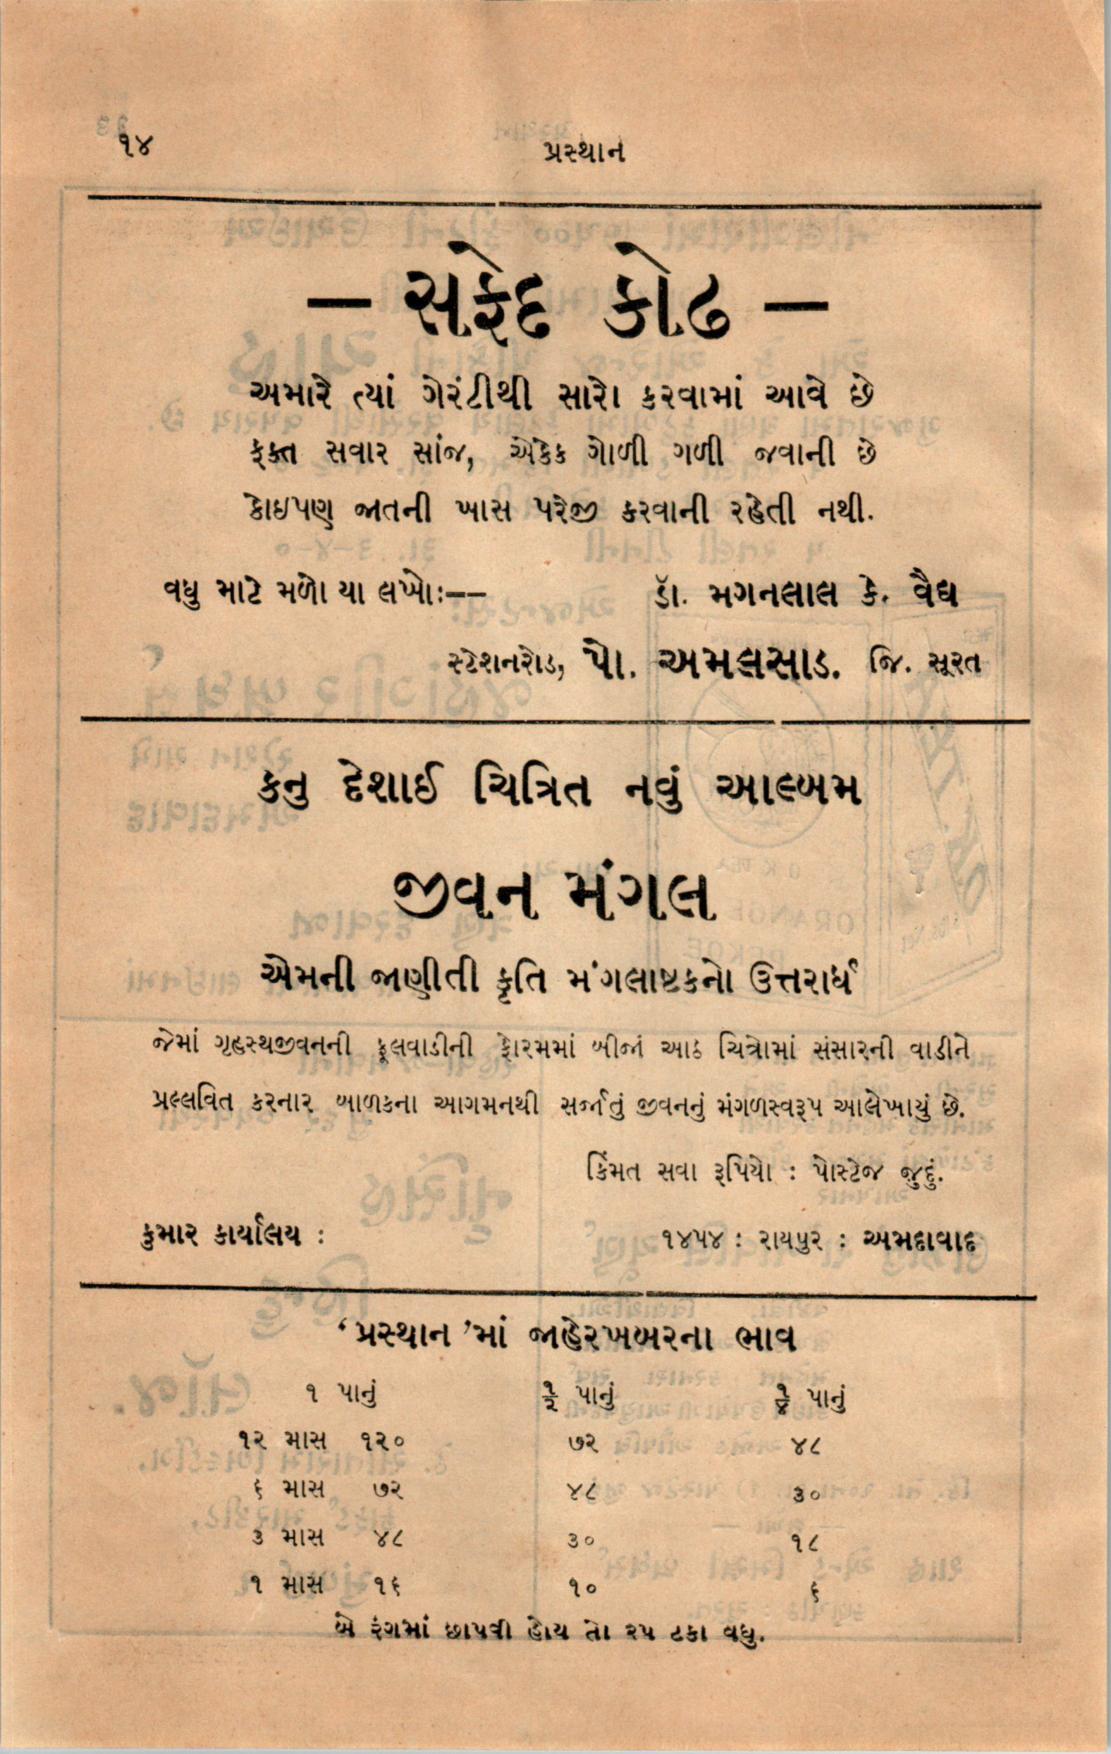 ૧૪
પ્રસ્થાન
— સફેદ કોઢ —
અમારે ત્યાં ગેરંટીથી સારો કરવામાં આવે છે
ફક્ત સવાર સાંજ, એકેક ગોળી ગળી જવાની છે
કોઇપણ જાતની ખાસ પરેજી કરવાની રહેતી નથી.
વધુ માટે મળો યા લખોઃ–– ડૉ. મગનલાલ કે. વૈદ્ય
સ્ટેશનરોડ, પો. અમલસાડ. જિ. સૂરત
કનુ દેશાઈ ચિત્રિત નવું આલ્બમ
જીવન મંગલ
એમની જાણીતી કૃતિ મંગલાષ્ટકનો ઉત્તરાર્ધ
જેમાં ગૃહસ્થજીવનની ફૂલવાડીની ફોરમમાં બીજાં આઠ ચિત્રોમાં સંસારની વાડીને
પ્રલ્લવિત કરનાર બાળકના આગમનથી સર્જાતું જીવનનું મંગળસ્વરૂપ આલેખાયું છે.
કિંમત સવા રૂપિયો : પોસ્ટેજ જુદું.
કુમાર કાર્યાલય : ૧૪૫૪ : રાયપુર : અમદાવાદ
‘પ્રસ્થાન’માં જાહેરખબરના ભાવ
૧ પાનું ૧/૨ પાનું ૧/૪ પાનું
૧૨ માસ ૧૨૦ ૭૨ ૪૮
૬ માસ ૭૨ ૪૮ ૩૦
૩ માસ ૪૮ ૩૦ ૧૮
૧ માસ ૧૬ ૧૦ ૬
બે રંગમાં છાપવી હોય તો ૨૫ ટકા વધુ.